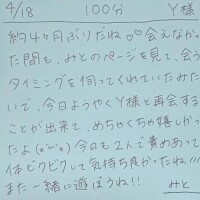 4/18 100分 Y様
約4ヶ月ぶりだね♡♡会えなかっ
た間も、みとのページを見て、会う
タイミングを伺ってくれていたみた
いで、今日ようやくY様と再会する
ことが出来て、めちゃくちゃ嬉しかっ
たよ(*ˊᵕˋ*)今日も2人で責めあって
体ビクビクして気持ち良かったね!!!
また一緒に遊ぼうね!!
みと